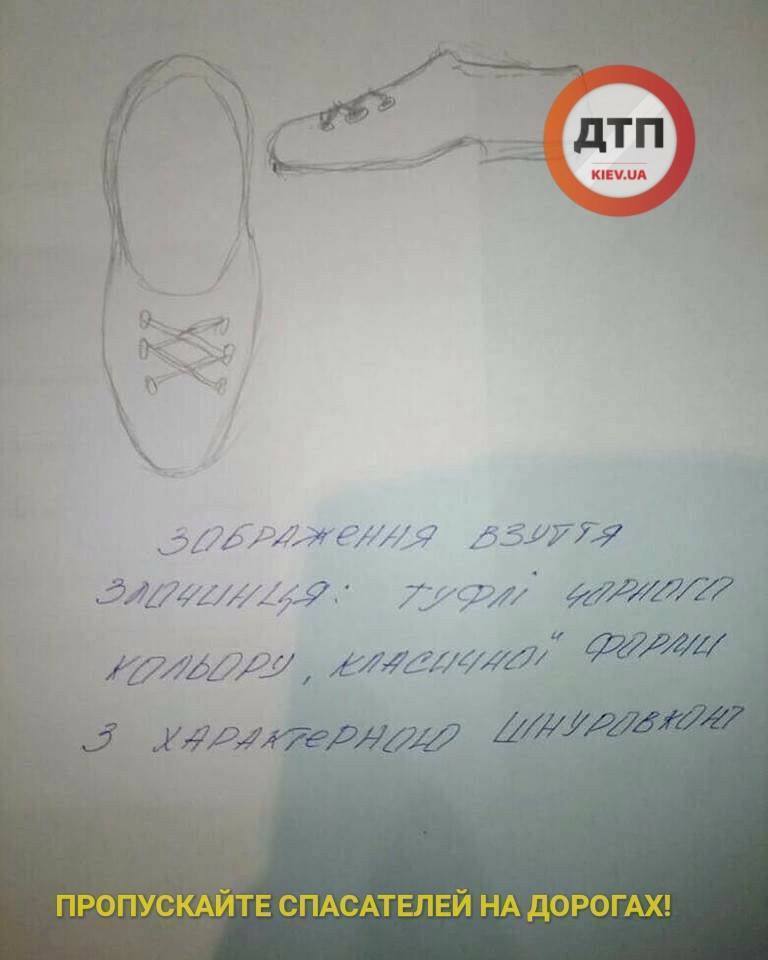 ДТП
KIEV.UA
ЗОБРАЖЕННЯ ВЗУТТЯ
ЗЛОЧИНЦЯ: ТУФЛІ ЧОРНОГО
КОЛЬОРУ, КЛАСИЧНОЇ ФОРМИ
З ХАРАКТЕРНОЮ ШНУРОВКОЮ
ПРОПУСКАЙТЕ СПАСАТЕЛЕЙ НА ДОРОГАХ!